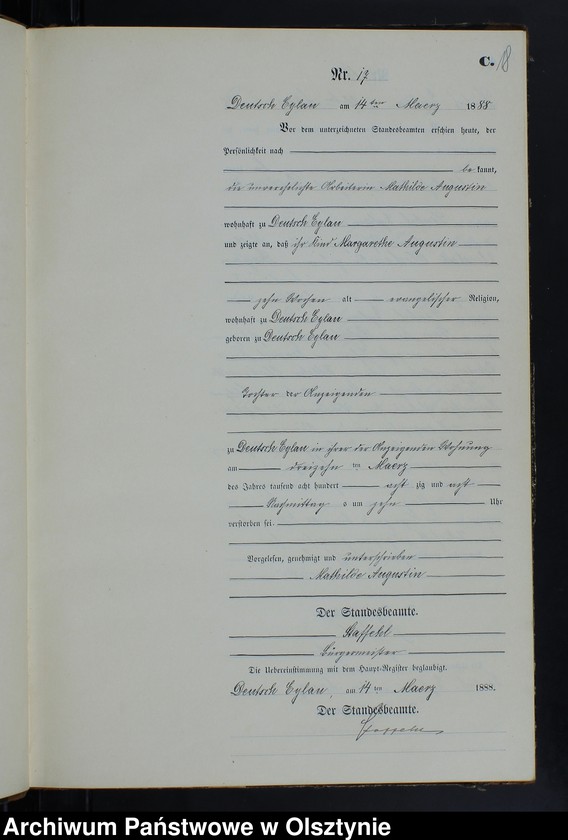 C. 18
Nr. 17
Deutsch Eylau am 14ten Maerz 1888
Vor dem unterzeichneten Standesbeamten erschien heute, der
Persönlichkeit nach
bekannt,
die unverehelichte Arbeiterin Mathilde Augustin
wohnhaft zu Deutsch Eylau
und zeigte an, daß ihr Kind Margarethe Augustin
zehn Wochen alt evangelischer Religion,
wohnhaft zu Deutsch Eylau
geboren zu Deutsch Eylau
Tochter der Anzeigenden
zu Deutsch Eylau in ihrer der Anzeigenden Wohnung
am dreizehnten Maerz
des Jahres tausend acht hundert achtzig und acht
Nachmittags um zehn Uhr
verstorben sei.
Vorgelesen, genehmigt und unterschrieben
Mathilde Augustin
Der Standesbeamte.
Staffehl
Bürgermeister
Die Uebereinstimmung mit dem Haupt-Register beglaubigt.
Deutsch Eylau, am 14ten Maerz 1888.
Der Standesbeamte.
Archiwum Państwowe w Olsztynie